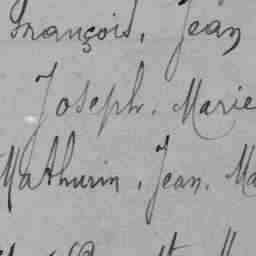 François, Jean
Joseph, Marie
Mathurin, Jean, Ma